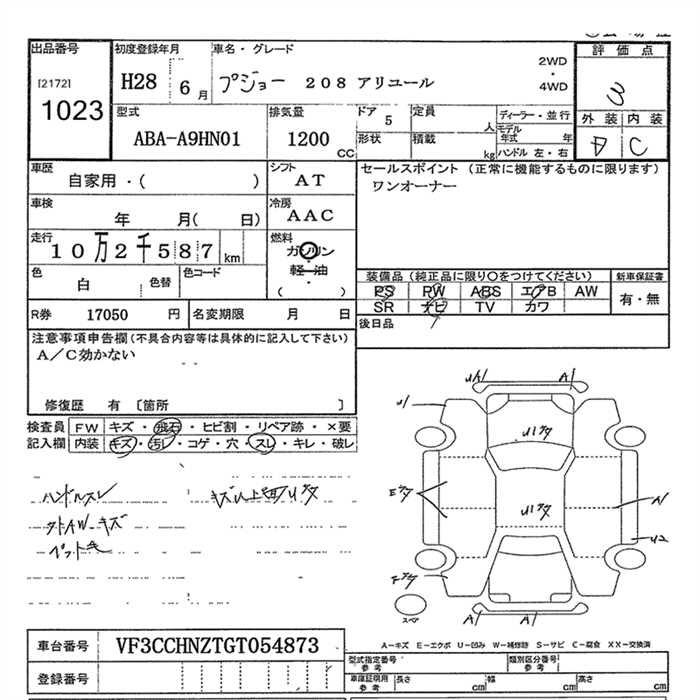 出品番号 初度登録年月 車名・グレード
評価点
[2172]
1023
H28 6月
プジョー 208 アリュール
2WD
・
4WD
3
型式 排気量 ドア 定員 ディーラー・並行
外装 内装
ABA-A9HN01 1200 CC
5 人
モデル年式 年
形状 積載 kg ハンドル 左・右
D C
車歴 シフト
自家用・( ) AT
セールスポイント(正常に機能するものに限ります)
ワンオーナー
車検 冷房
年 月( 日) AAC
走行 燃料
10万2千587 km
ガソリン
軽・油
・
( )
色 色替 色コード
白
装備品(純正品に限り○をつけてください) 新車保証書
PS PW ABS エアB AW
SR ナビ TV カワ
有・無
R券 17050 円 名変期限 月 日
後日品
注意事項申告欄(不具合内容等は具体的に記入して下さい)
A/C効かない
修復歴 有 〔箇所 〕
検査員 FW キズ・飛石・ヒビ割・リペア跡・×要
記入欄 内装 キズ・汚レ・コゲ・穴・スレ・キレ・破レ
ハンドルスレ
キズ
ペット毛
UA1 A1
U1
A1
U2
A1 A1
スペア
A-キズ E-エクボ U-凹み W-補修跡 S-サビ C-腐食 XX-交換済
車台番号 VF3CCHNZTGT054873
登録番号
型式指定番号 参考 類別区分番号 参考
車庫証明用 参考 長さ cm 幅 cm 高さ cm